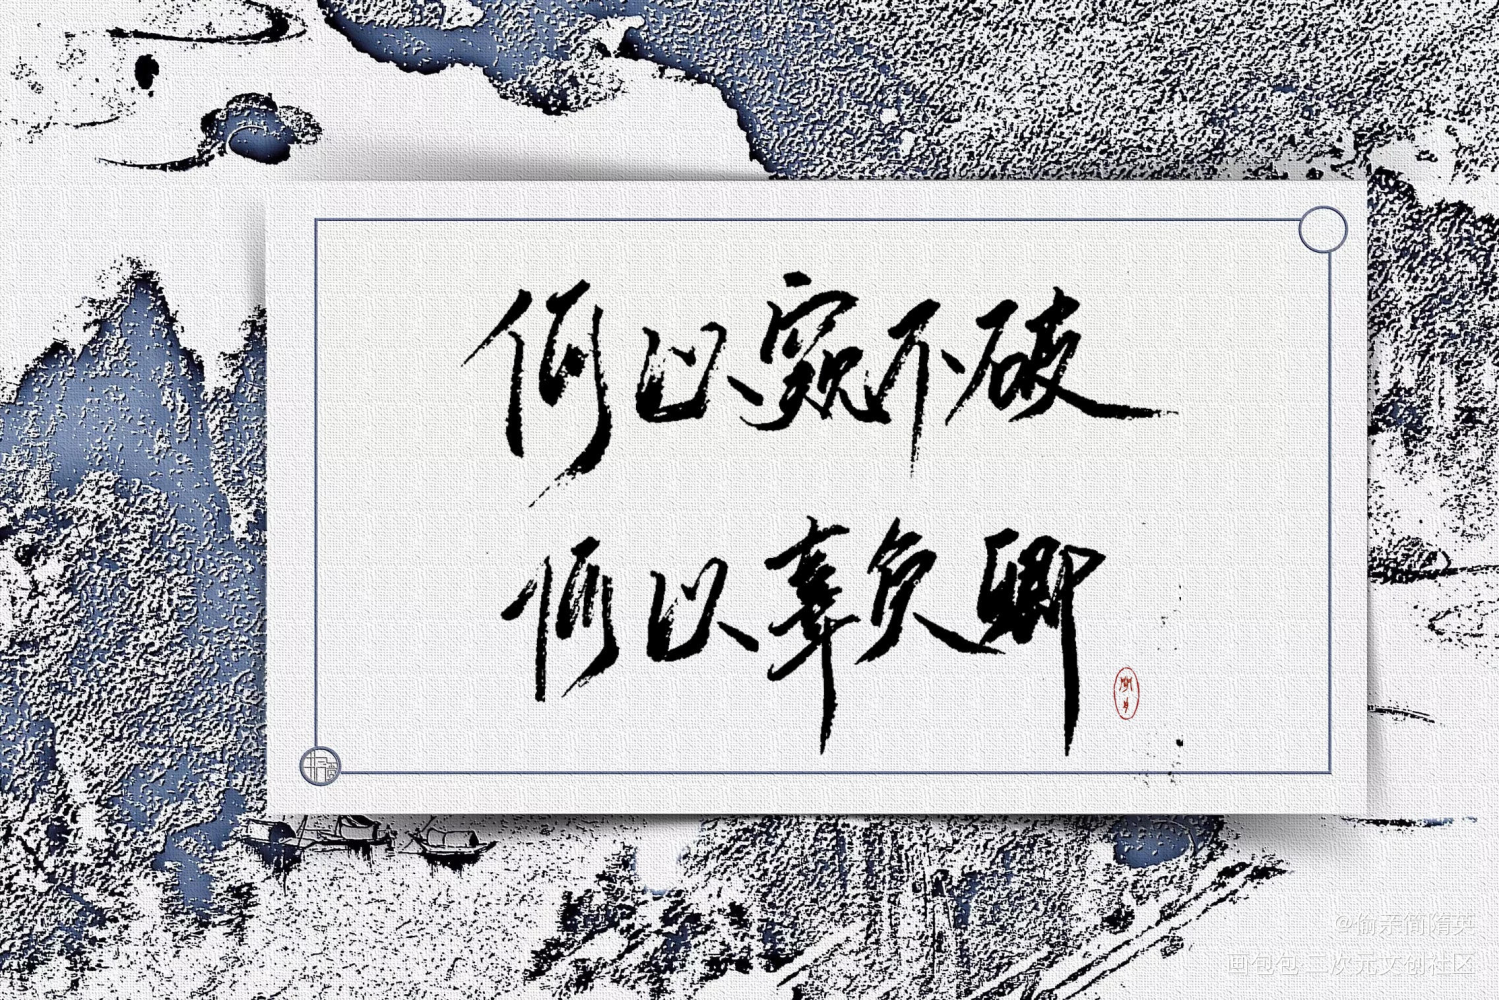 何以窥不破
何以辜负卿
@偷亲简隋英
画包包 二次元文创社区